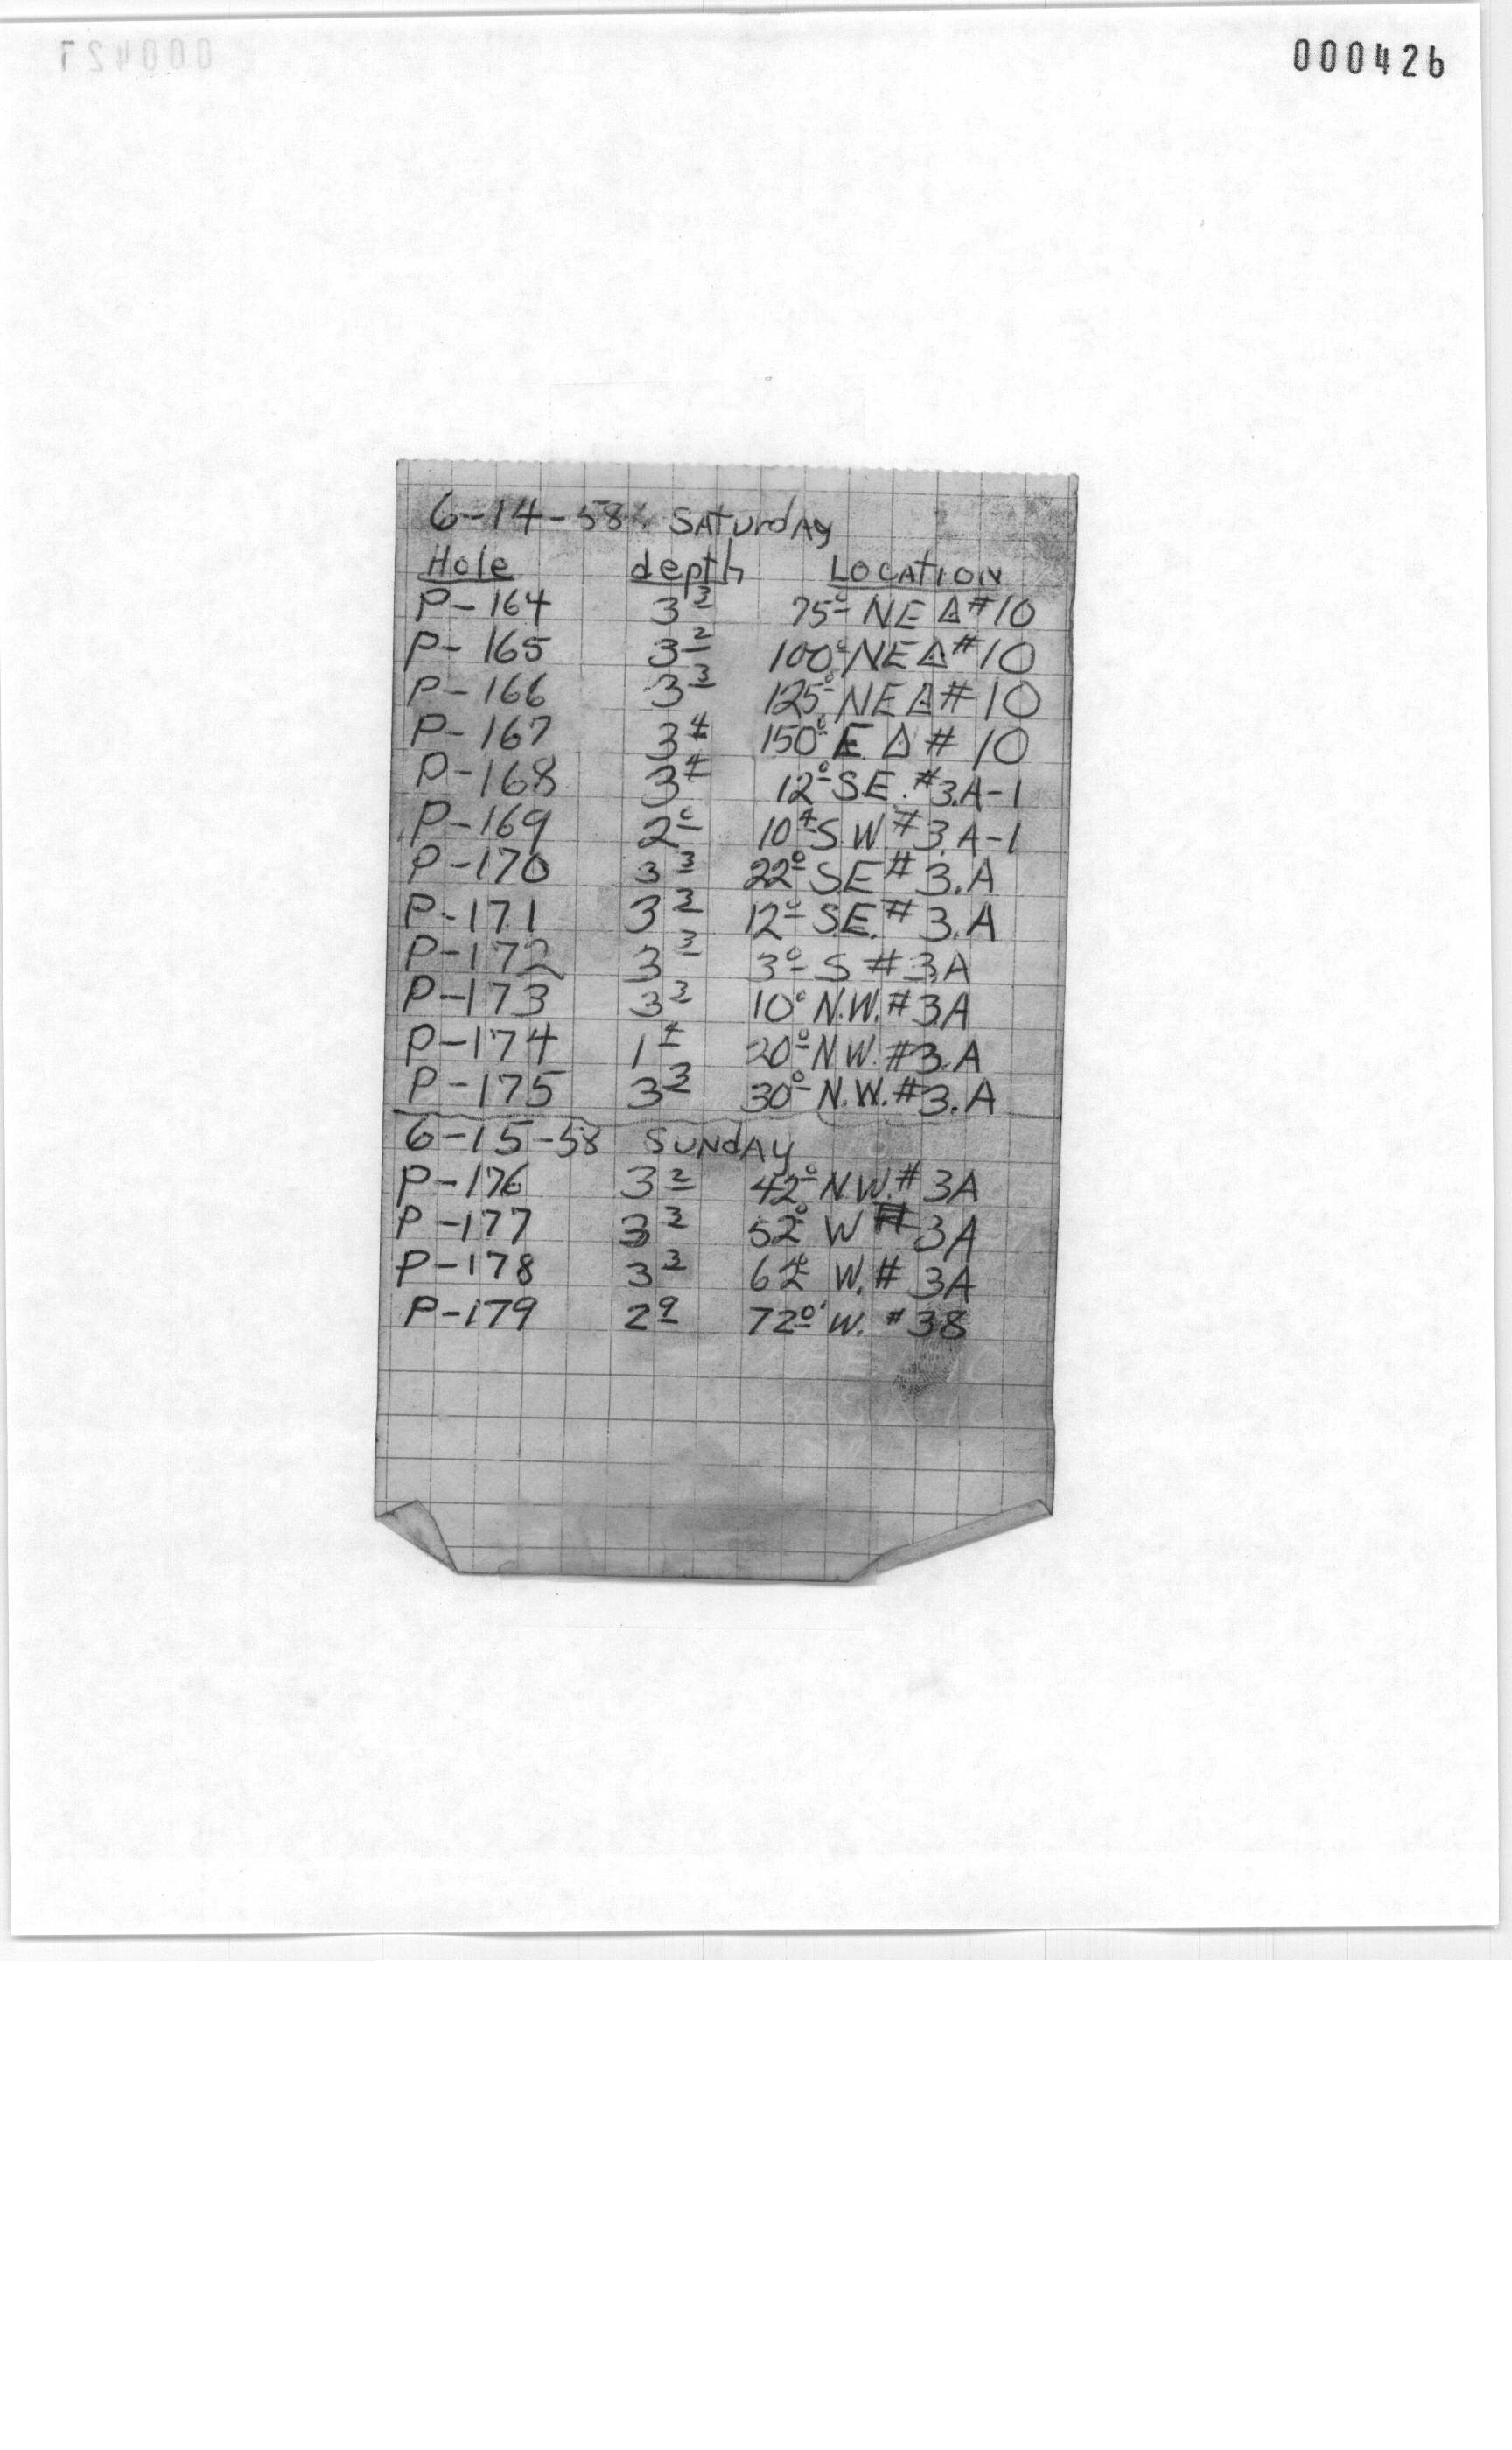 000426
6-14-58 SAturdAy
Hole depth LOCATION
P-164 3³ 75° NE Δ #10
P-165 3² 100° NE Δ #10
P-166 3³ 125° NE Δ # 10
P-167 3⁴ 150° E Δ # 10
P-168 3⁴ 12° SE. #3.A-1
P-169 2° 10⁴ S.W. #3.A-1
P-170 3³ 22° SE # 3.A
P-171 3³ 12° SE. # 3.A
P-172 3³ 3° S # 3A
P-173 3³ 10° N.W. # 3A
P-174 1⁴ 20° N.W. #3.A
P-175 3³ 30° N.W. #3.A
6-15-58 SUNdAy
P-176 3² 42° N.W. # 3A
P-177 3³ 52° W # 3A
P-178 3³ W. # 3A
P-179 2⁹ 72° W. #38